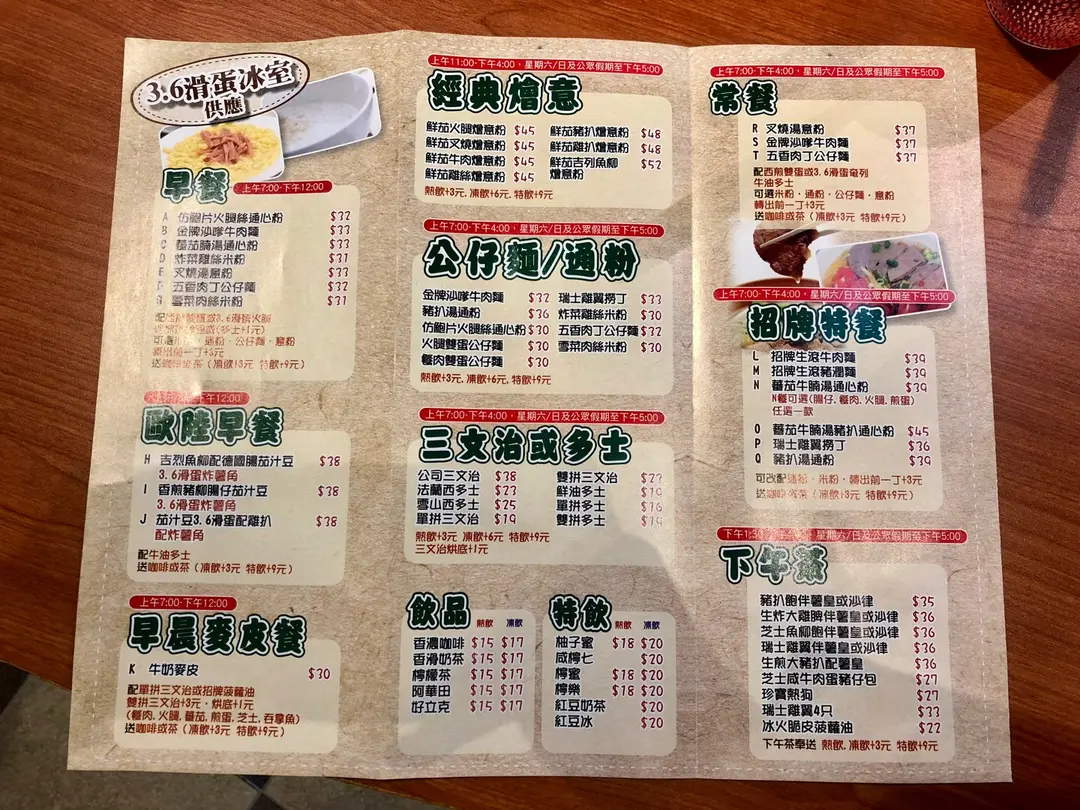 3.6滑蛋冰室
供應
早餐 上午7:00-下午12:00
A 仿鮑片火腿絲通心粉 $32
B 金牌沙嗲牛肉麵 $33
C 蕃茄腩湯通心粉 $33
D 炸菜雞絲米粉 $31
E 叉燒湯意粉 $33
F 五香肉丁公仔麵 $32
G 雪菜肉絲米粉 $31
配 3.6滑蛋火腿
(多士+1元)
可選 通粉·公仔麵·意粉
轉出前一丁+3元
送咖啡或茶(凍飲+3元 特飲+9元)
下午12:00
歐陸早餐
H 吉烈魚柳配德國腸茄汁豆 $38
3.6滑蛋炸薯角
I 香煎豬柳腸仔茄汁豆 $38
3.6滑蛋炸薯角
J 茄汁豆3.6滑蛋配雞扒 $38
配炸薯角
配牛油多士
送咖啡或茶(凍飲+3元 特飲+9元)
上午7:00-下午12:00
早晨麥皮餐
K 牛奶麥皮 $30
配單拼三文治或招牌菠蘿油
雙拼三文治+3元,烘底+1元
(餐肉,火腿,蕃茄,煎蛋,芝士,吞拿魚)
送咖啡或茶(凍飲+3元 特飲+9元)
上午11:00-下午4:00,星期六/日及公眾假期至下午5:00
經典燴意
鮮茄火腿燴意粉 $45 鮮茄豬扒燴意粉 $48
鮮茄叉燒燴意粉 $45 鮮茄雞扒燴意粉 $48
鮮茄牛肉燴意粉 $45 鮮茄吉列魚柳 $52
鮮茄雞絲燴意粉 $45 燴意粉
熱飲+3元,凍飲+6元,特飲+9元
上午7:00-下午4:00,星期六/日及公眾假期至下午5:00
公仔麵/通粉
金牌沙嗲牛肉麵 $32 瑞士雞翼撈丁 $33
豬扒湯通粉 $36 炸菜雞絲米粉 $30
仿鮑片火腿絲通心粉 $30 五香肉丁公仔麵 $32
火腿雙蛋公仔麵 $30 雪菜肉絲米粉 $30
餐肉雙蛋公仔麵 $30
熱飲+3元,凍飲+6元,特飲+9元
上午7:00-下午4:00,星期六/日及公眾假期至下午5:00
三文治或多士
公司三文治 $38 雙拼三文治
法蘭西多士 $23 鮮油多士
雪山西多士 $25 單拼多士
單拼三文治 $19 雙拼多士 $19
熱飲+3元 凍飲+6元 特飲+9元
三文治烘底+1元
飲品 熱飲 凍飲
香濃咖啡 $15 $17
香滑奶茶 $15 $17
檸檬茶 $15 $17
阿華田 $15 $17
好立克 $15 $17
特飲 熱飲 凍飲
柚子蜜 $18 $20
咸檸七 $20
檸蜜 $18 $20
檸樂 $18 $20
紅豆奶茶 $20
紅豆冰 $20
上午7:00-下午4:00,星期六/日及公眾假期至下午5:00
常餐
R 叉燒湯意粉 $37
S 金牌沙嗲牛肉麵 $37
T 五香肉丁公仔麵 $37
配西煎雙蛋或3.6滑蛋奄列
牛油多士
可選米粉·通粉·公仔麵·意粉
轉出前一丁+3元
送咖啡或茶(凍飲+3元 特飲+9元)
上午7:00-下午4:00,星期六/日及公眾假期至下午5:00
招牌特餐
L 招牌生滾牛肉麵 $39
M 招牌生滾豬潤麵 $39
N 蕃茄牛腩湯通心粉 $39
N餐可選(腸仔,餐肉,火腿,煎蛋)
任選一款
O 蕃茄牛腩湯豬扒通心粉 $45
P 瑞士雞翼撈丁 $36
Q 豬扒湯通粉 $39
可改配通粉·米粉·轉出前一丁+3元
送咖啡或茶(凍飲+3元 特飲+9元)
星期六/日及公眾假期至下午5:00
下午茶
豬扒飽伴薯皇或沙律 $35
生炸大雞脾伴薯皇或沙律 $36
芝士魚柳飽伴薯皇或沙律 $36
瑞士雞翼伴薯皇或沙律 $36
生煎大豬扒配薯皇 $36
芝士咸牛肉蛋豬仔包 $27
珍寶熱狗 $27
瑞士雞翼4只 $33
冰火脆皮菠蘿油 $22
下午茶奉送 熱飲,凍飲+3元 特飲+9元